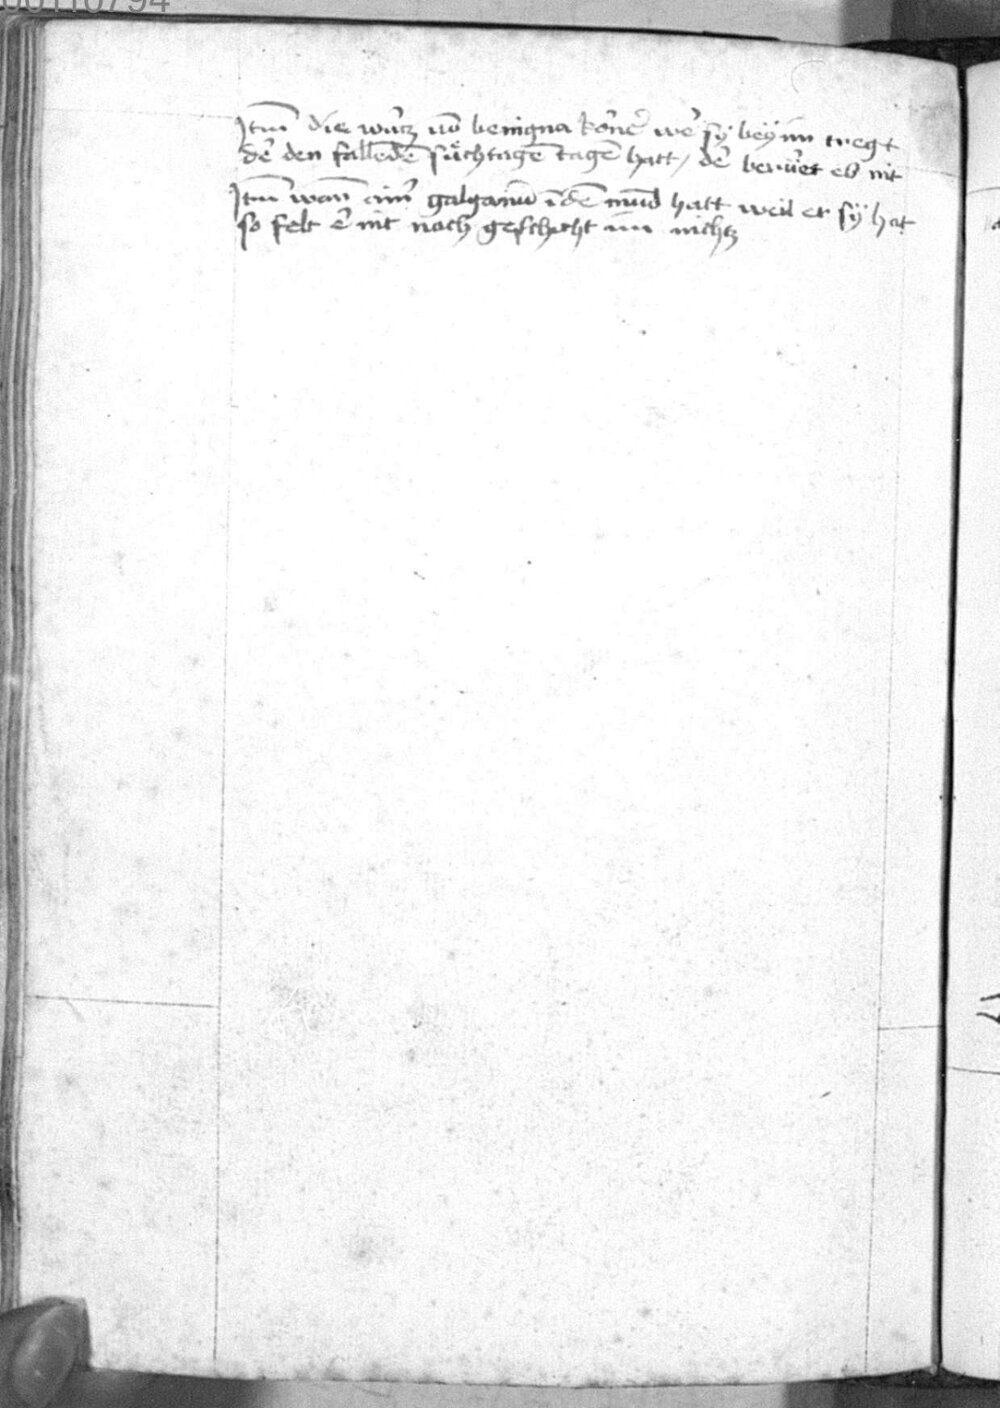 00110794
Itm̄ die wúrtz vō benigna kórner wer sÿ beÿ im tregt
der den fallēdē súchtagē tagē hatt / der berúret eß nit
Itm̄ wan̄ ainer galganū ī dē mūd hatt weil er sÿ hat
so felt er nit noch geschicht im nichtz